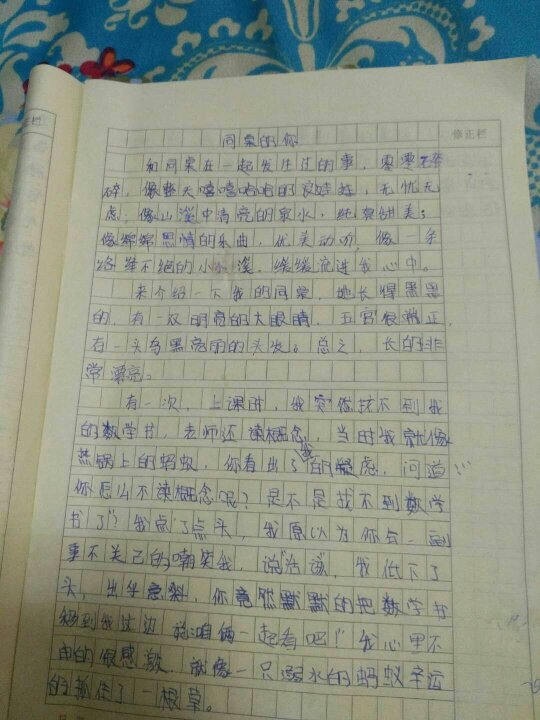 同桌的你
修正栏
和同桌在一起发生过的事，零零碎
碎，像整天嘻嘻哈哈的娃娃，无忧无
虑；像山溪中清亮的泉水，纯真甜美；
像绵绵思情的乐曲，优美动听，像一条
络绎不绝的小溪，缓缓流进我心中。
来介绍一下我的同桌，她长得黑黑
的，有一双明亮的大眼睛，五官很端正，
有一头乌黑亮丽的头发。总之，长的非
常漂亮。
有一次，上课时，我突然找不到我
的数学书，老师还读概念，当时我就像
热锅上的蚂蚁，你看出了我的疑虑，问道："
你怎么不读概念呢？是不是找不到数学
书了？我点了点头，我原以为你会一副
事不关己的嘲笑我，说"活该"，我低下了
头，出乎意料，你竟然默默的把数学书
移到我这边说咱俩一起看吧！"我心里不
由的很感激，就像一只溺水的蚂蚁幸运
的抓住了一根草。